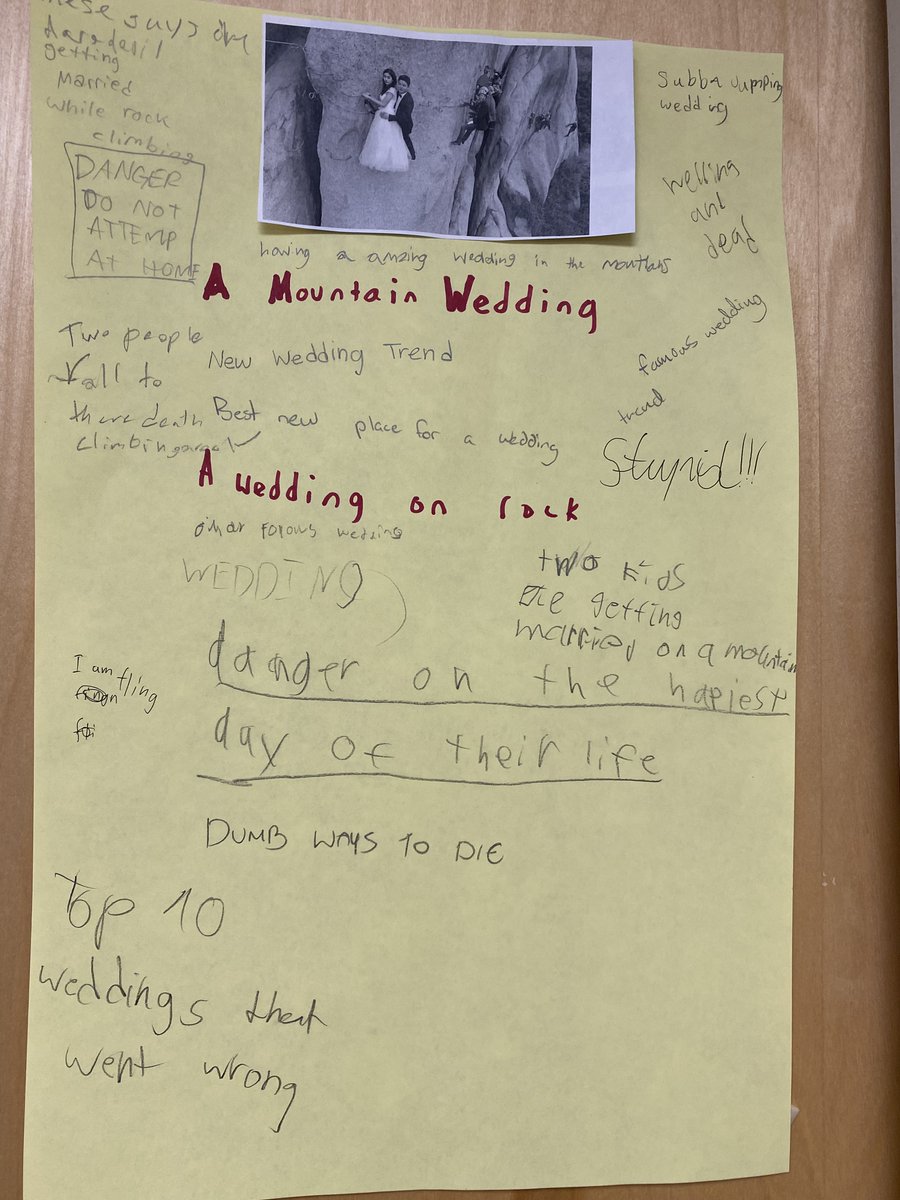 these guys are
daredevil
getting
married
while rock
climbing
DANGER
DO NOT
ATTEMP
At HOME
Subba Jumping
wedding
welling
and
dead
having a amzing wedding in the
A Mountain Wedding
Two people
fall to
there death
climbing
New Wedding Trend
famous wedding
trend
Best new place for a wedding
Stupid!!!
A wedding on rock
wedding
WEDDING
two kids
are getting
married on a mountain
danger on the hapiest
day of their life
I am fling
DUMB WAYS TO DIE
Top 10
weddings that
went wrong